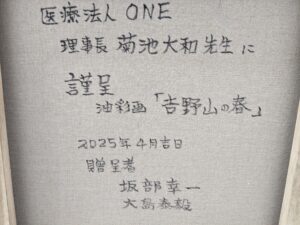 医療法人 ONE
理事長 菊池大和 先生 に
謹呈
油彩画「吉野山の春」
2025年4月吉日
贈呈者
坂部幸一
大島泰毅